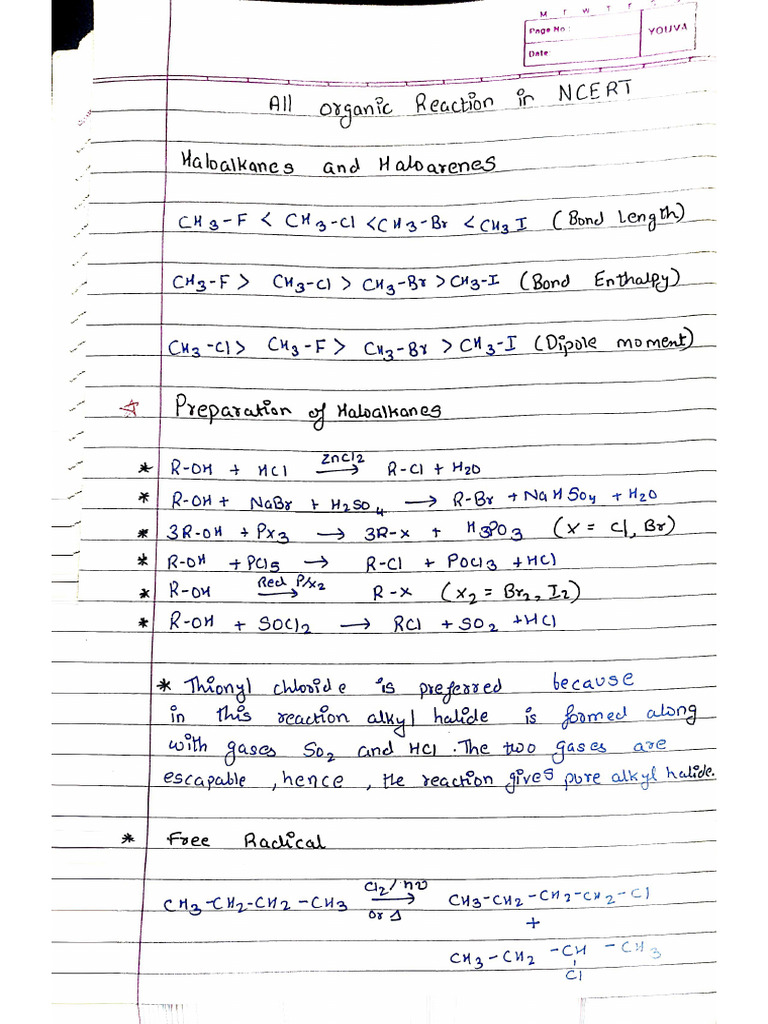 M T W T F S
Page No.:
YOUVA
Date:
All organic Reaction in NCERT
Haloalkanes and Haloarenes
CH3-F < CH3-Cl < CH3-Br < CH3 I (Bond Length)
CH3-F > CH3-Cl > CH3-Br > CH3-I (Bond Enthalpy)
CH3-Cl > CH3-F > CH3-Br > CH3-I (Dipole moment)
☆ Preparation of Haloalkanes
* R-OH + HCl —ZnCl2→ R-Cl + H2O
* R-OH + NaBr + H2SO4 → R-Br + NaHSO4 + H2O
* 3R-OH + PX3 → 3R-X + H3PO3 (X = Cl, Br)
* R-OH + PCl5 → R-Cl + POCl3 + HCl
* R-OH —Red P/X2→ R-X (X2 = Br2, I2)
* R-OH + SOCl2 → RCl + SO2 + HCl
* Thionyl chloride is preferred because
in this reaction alkyl halide is formed along
with gases SO2 and HCl. The two gases are
escapable, hence, the reaction gives pure alkyl halide.
* Free Radical
CH3-CH2-CH2-CH3 —Cl2/hν or Δ→ CH3-CH2-CH2-CH2-Cl
+
CH3-CH2-CH-CH3
Cl